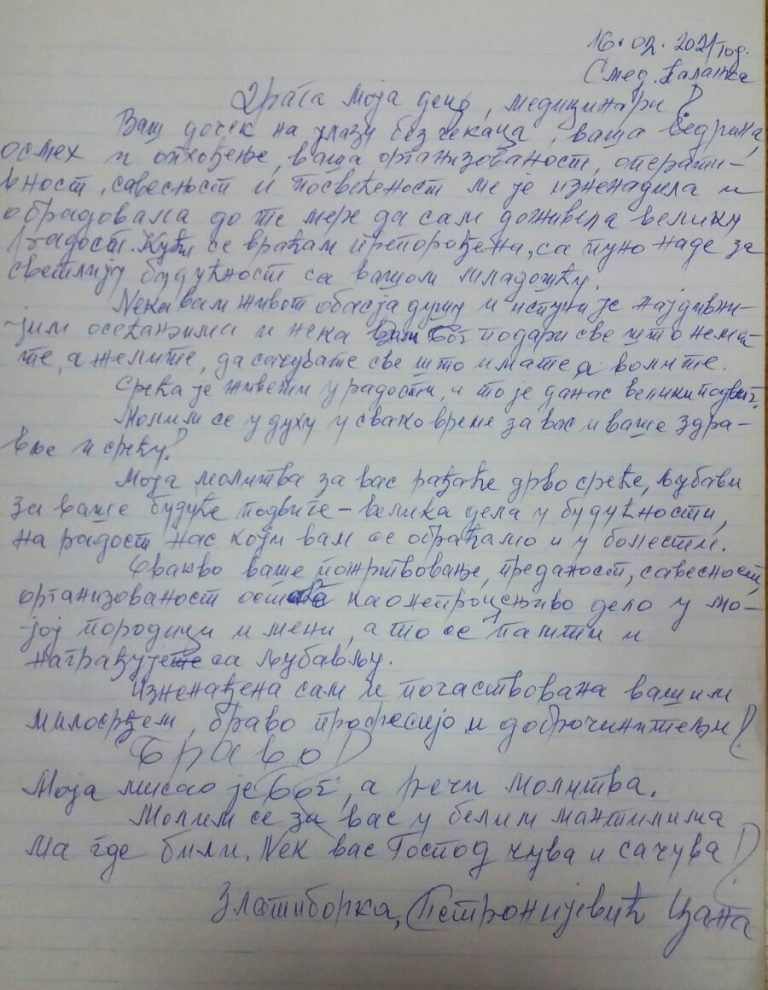 16.02.2021 год.
Смед. Паланка
Драга моја децо, медицинари!
Ваш дочек на улазу без чекања, ваша ведрина,
осмех и опхођење, ваша организованост, операти-
вност, савесност и посвећеност ме је изненадила и
обрадовала до те мере да сам доживела велику
радост. Кући се враћам препорођена, са пуно наде за
светлију будућност са вашом младошћу.
Нека вам живот обасја душу и испуни је најдивни-
-јим осећањима и нека вам Бог подари све што нема-
те, а желите, да сачувате све што имате а волите.
Срећа је живети у радости, и то је данас велики подвиг.
Молим се у духу у свако време за вас и ваше здра-
вље и срећу!
Моја молитва за вас рађаће дрво среће, љубави
за ваше будуће подвиге - велика дела у будућности,
на радост нас који вам се обраћамо и у болести.
Овакво ваше пожртвовање, преданост, савесност,
организованост оста као непроцењиво дело у мо-
-јој породици и мени, а то се памти и
награђује са љубављу.
Изненађена сам и почаствована вашим
милосрђем, браво професијо и доброчинитељи!
Браво!
Моја мисао је Бог, а речи молитва.
Молим се за вас у белим мантилима
ма где били. Nек вас Господ чува и сачува!
Златиборка, Петронијевић Цана